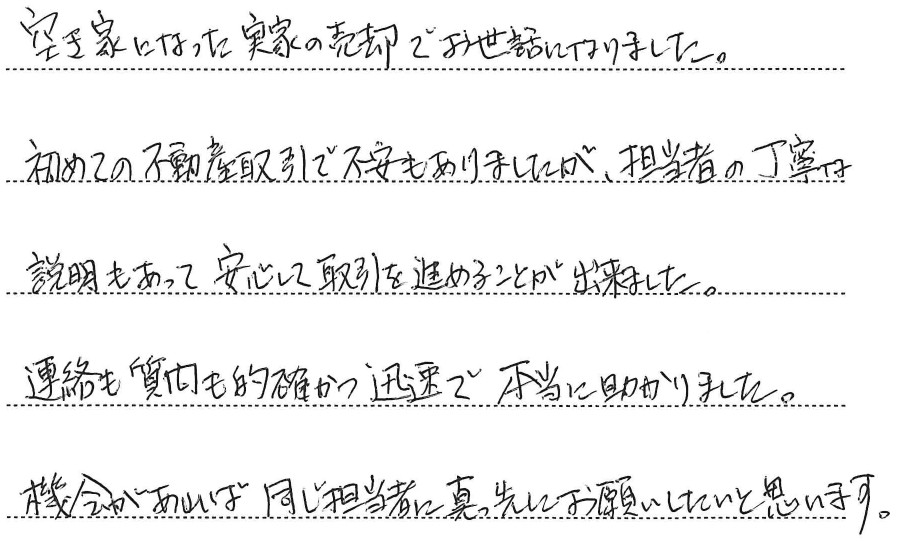 空き家になった実家の売却でお世話になりました。
初めての不動産取引で不安もありましたが、担当者の丁寧な
説明もあって安心して取引を進めることが出来ました。
連絡も質問も的確かつ迅速で本当に助かりました。
機会があれば同じ担当者に真っ先にお願いしたいと思います。